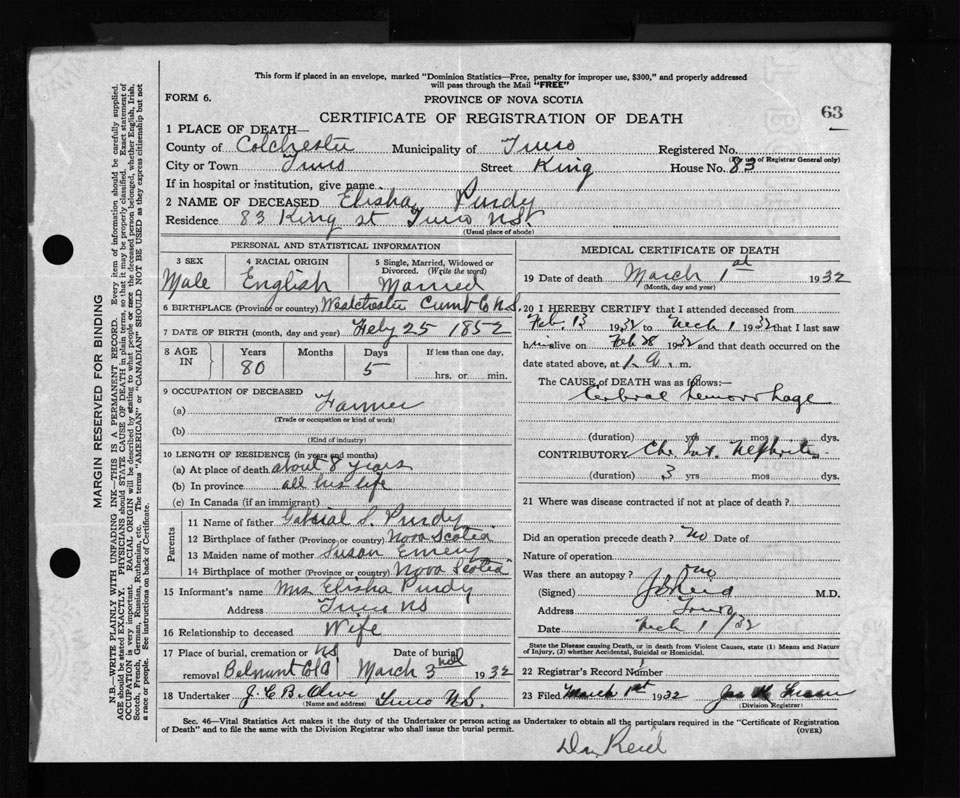 This form if placed in an envelope, marked "Dominion Statistics—Free, penalty for improper use, $300," and properly addressed
will pass through the Mail "FREE"
FORM 6.
PROVINCE OF NOVA SCOTIA
63
CERTIFICATE OF REGISTRATION OF DEATH
1 PLACE OF DEATH—
County of Colchester Municipality of Truro Registered No.
(For use of Registrar General only)
City or Town Truro Street King House No. 83
If in hospital or institution, give name
2 NAME OF DECEASED Elisha Purdy
Residence 83 King st Truro N.S.
(Usual place of abode)
PERSONAL AND STATISTICAL INFORMATION
3 SEX
Male
4 RACIAL ORIGIN
English
5 Single, Married, Widowed or Divorced. (Write the word)
Married
6 BIRTHPLACE (Province or country) Westchester Cumb Co N.S.
7 DATE OF BIRTH (month, day and year) Feby 25 1852
8 AGE IN Years Months Days If less than one day,
80 5 hrs. or min.
9 OCCUPATION OF DECEASED
(a) Farmer
(Trade or occupation or kind of work)
(b)
(Kind of industry)
10 LENGTH OF RESIDENCE (in years and months)
(a) At place of death about 8 years
(b) In province all his life
(c) In Canada (if an immigrant)
Parents
11 Name of father Gabrial S. Purdy
12 Birthplace of father (Province or country) Nova Scotia
13 Maiden name of mother Susan Emery
14 Birthplace of mother (Province or Country) Nova Scotia
15 Informant's name Mrs Elisha Purdy
Address Truro NS
16 Relationship to deceased Wife
17 Place of burial, cremation or removal Belmont Col Co NS
Date of burial March 3rd 1932
18 Undertaker Truro N.S.
(Name and address)
MEDICAL CERTIFICATE OF DEATH
19 Date of death March 1st 1932
(Month, day and year)
20 I HEREBY CERTIFY that I attended deceased from
Feb. 13 1932 to Mch 1 1932 that I last saw
him alive on Feb 28 1932 and that death occurred on the
date stated above, at 1 a. m.
The CAUSE OF DEATH was as follows:—
Cerbral hemorrhage
(duration) yrs mos dys.
CONTRIBUTORY Chr. Int. Nephritis
(duration) 3 yrs mos dys.
21 Where was disease contracted if not at place of death?
Did an operation precede death? No Date of
Nature of operation
Was there an autopsy? no
(Signed) Reid M.D.
Address Truro
Date Mch 1/32
State the Disease causing Death, or in death from Violent Causes, state (1) Means and Nature
of Injury, (2) whether Accidental, Suicidal or Homicidal.
22 Registrar's Record Number
23 Filed March 1st 1932
(Division Registrar)
Sec. 46—Vital Statistics Act makes it the duty of the Undertaker or person acting as Undertaker to obtain all the particulars required in the "Certificate of Registration
of Death" and to file the same with the Division Registrar who shall issue the burial permit.
(OVER)
Reid
MARGIN RESERVED FOR BINDING
N.B.—WRITE PLAINLY WITH UNFADING INK—THIS IS A PERMANENT RECORD. Every item of information should be carefully supplied.
AGE should be stated EXACTLY. PHYSICIANS should STATE CAUSE OF DEATH in plain terms, so that it may be properly classified. Exact statement of
OCCUPATION is very important. RACIAL ORIGIN will be described by stating to what people or race the deceased person belonged, whether English, Irish,
Scotch, French, German, Russian, Ruthenian, etc. The terms "AMERICAN" or "CANADIAN" SHOULD NOT BE USED as they express citizenship but not
a race or people. See instructions on back of Certificate.